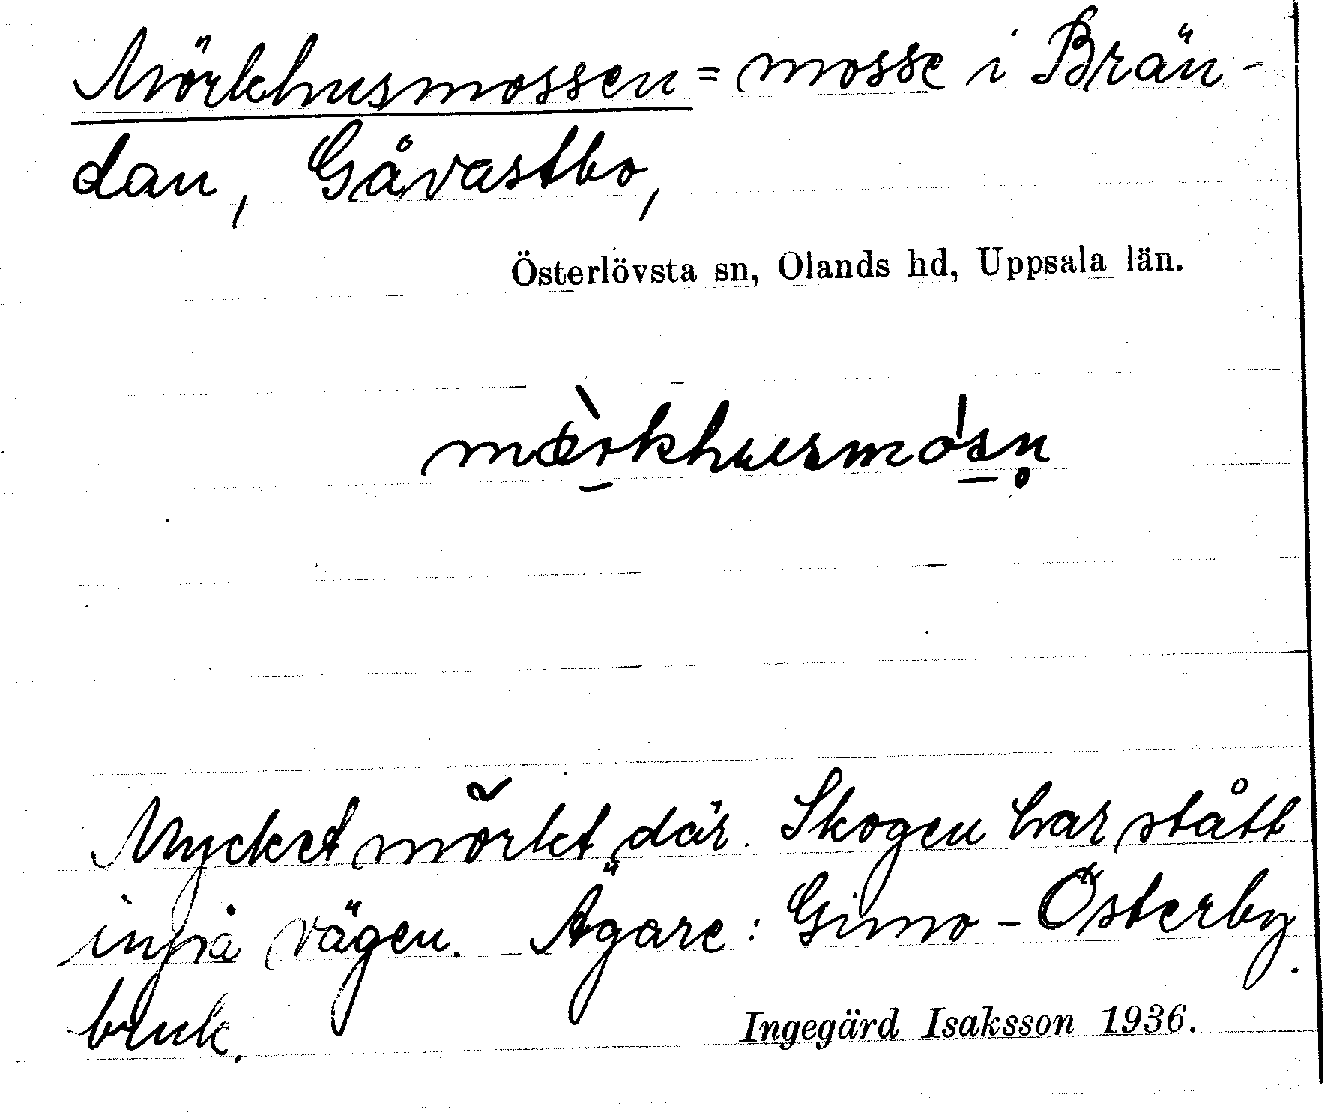 Mörkhusmossen = mosse i Brän-
dan, Gåvastbo,
Österlövsta sn, Olands hd, Uppsala län.
mœ̀rkhusmo̍sn̥
Mycket mörkt där. Skogen har stått
inpå vägen. Ägare: Gimo-Österby
bruk.
Ingegärd Isaksson 1936.